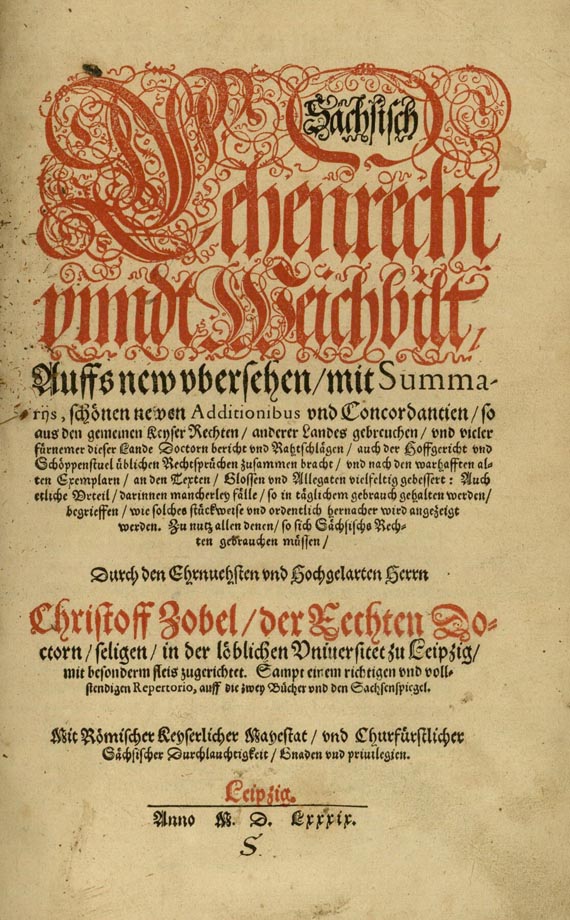 Sächsisch
Lehenrecht
vnndt Weichbilt /
Auffs new vbersehen / mit Summa-
rijs, schönen newen Additionibus vnd Concordantien / so
aus den gemeinen Keyser Rechten / anderer Landes gebreuchen / vnd vieler
fürnemer dieser Lande Doctorn bericht vnd Rahtschlägen / auch der Hoffgericht vnd
Schöppenstuel üblichen Rechtsprüchen zusammen bracht / vnd nach den warhafften al-
ten Exemplarn / an den Texten / Glossen vnd Allegaten vielfeltig gebessert: Auch
etliche Vrteil / darinnen mancherley fälle / so in täglichem gebrauch gehalten werden /
begrieffen / wie solches stückweise vnd ordentlich hernacher wird angezeigt
werden. Zu nutz allen denen / so sich Sächsischs Rech-
ten gebrauchen müssen /
Durch den Ehrnuehsten vnd Hochgelarten Herrn
Christoff Zobel / der Rechten Do-
ctorn / seligen / in der löblichen Vniuersitet zu Leipzig /
mit besonderm fleis zugerichtet. Sampt einem richtigen vnd voll-
stendigen Repertorio, auff die zwey Bücher vnd den Sachsenspiegel.
Mit Römischer Keyserlicher Mayestat / vnd Churfürstlicher
Sächsischer Durchlauchtigkeit / Gnaden vnd priuilegien.
Leipzig.
Anno M. D. Lxxxix.
S.